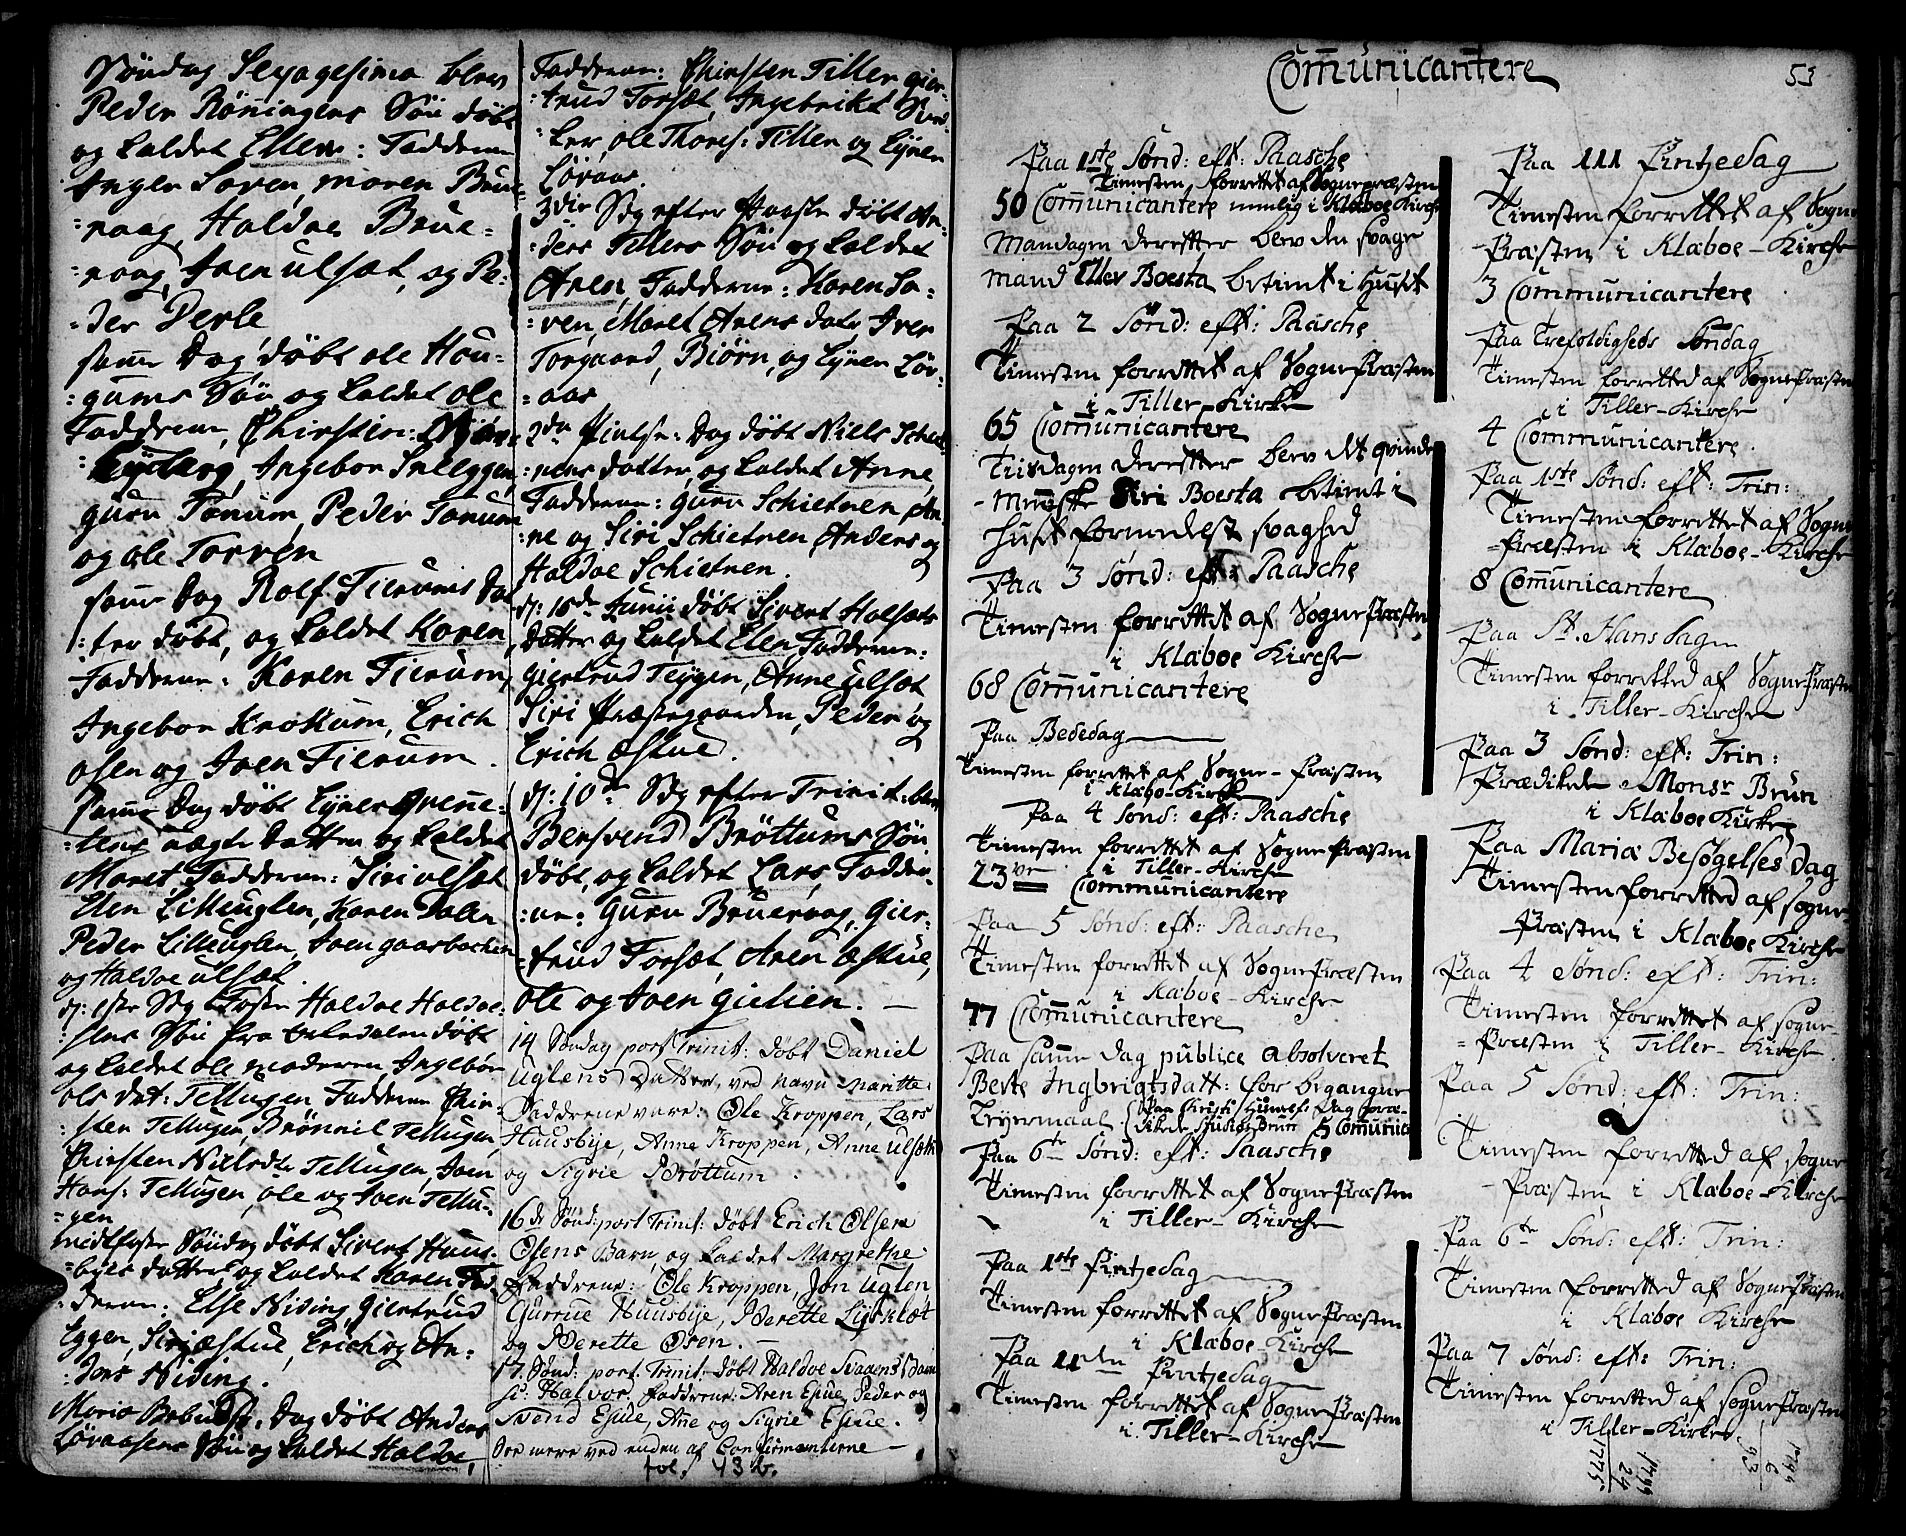 Søndag Sexagesima blev
Peder Rønningens Søn døbt
og kaldet Ellen: Fadderne
Inger Soren, maren Brue-
:raag, Haldoe Brue=
:raag, Joen ulsæt, og Pe:
:der Derle
samme Dag døbt ole Hou=
:gums Søn og kaldet ole
Fadderne, Chirsten:
Ingebor Sneeggen,
guru Tanum, Peder Tanum
og ole Torven
samme Dag Rolf Tierums Dat
:ter døbt, og kaldet Karen,
Fadderne: Karen Tierum,
Ingebor Krokum, Erich
osen og Joen Tierum.
samme Dag døbt Eyner grenne=
:tens ægte Datter og kaldet
Maret, Fadderne: Siri ulsæt
Elen Lilleuglen, Karen Dalen
Peder Lilleuglen, Joen gaarbacken
og Haldoe ulsæt.
d: 1ste Sdg Faste Haldoe Haldoe=
:sens Søn fra døbt
og kaldet ole moderen Ingebor
ols dat: Tellugen Fadderne Chir=
:sten Tellugen, Brønnil Tellugen,
Chirsten Nielsdtr Tellugen, Joen
Hans: Tellugen, ole og Joen Tellu=
=gen
midfaste Søndag døbt Sivert Huus=
byes datter og kaldet Karen Fad
:derne: Else Niding, giertrud
Eggen, Siri Æstue, Erich og An=
:ders Niding.
Mariæ Dag døbt Anders
Løraasens Søn og kaldet Haldoe,
Fadderne: Chirsten Tiller gier=
:trud Forsæt, Ingebrikt
:ler, ole Thores: Tiller og Eyner
Løraas.
3die Sdg efter Paaske døbt An=
:ders Tillers Søn og kaldet
Aren, Fadderne: Karen Sa=
:ren, Maret Arens datr Iver
Torgaard, Biørn, og Eyner Lør=
=aas
2den Pintse: Dag døbt Niels Schiet
nens datter og kaldet Anne,
Fadderne: guru Schietnen An=
:ne og Siri Schietnen Anders og
Haldoe Schietnen.
d: 15de Junii døbt Sivert Halsæts
datter og kaldet Elen Fadderne:
giertrud Teygen, Anne ulsæt
Siri Præstegaarden, Peder og
Erich Æstue.
d: 10de Sdg efter Trinit: blev
Bersvend Brøttums Søn
døbt, og kaldet Lars, Fadder=
:ne: guru Brueraag, gier=
:trud Forsæt, Aren Æstue,
ole og Joen gielien. —
14 Søndag post Trinit: døbt Daniel
Uglens Datter, ved navn Maritte.
Faddrene vare: Ole Kroppen, Lars
Huusbÿe, Anne Kroppen, Anne Ulsæt
og Sigrie Brøttum.
16de Sønd: post Trinit: døbt Erich Olsen
Osens Barn, og kaldet Margrethe
Faddrene: Ole Kroppen, Jon Uglen
Gurrue Huusbÿe, Berette Lysklæt
og Berette Osen. —
17 Sønd: post Trinit: døbt Haldoe Svaaens Barn
Halvor, faddrene: Aren Esue, Peder og
Svend Esue, Ane og Sigrie Esue.
See mere ved enden af Confirmanterne —
fol. 43 b.
Com̄unicantere
53
Paa 1ste Sønd: eft: Paasche
Tienesten forrettet af Sognepræsten
50 Com̄unicantere nemlig i Klæboe Kirche
Mandagen derefter blev den svage
mand Ellev Boesta betient i Huset
Paa 2 Sønd: eft: Paasche
Tienesten forrettet af SognePræsten
i Tiller-Kirke
65 Com̄unicantere
Tirsdagen derefter blev det qvinde
-menneske Siri Boesta betient i
Huset formedelst svaghed
Paa 3 Sønd: eft: Paasche
Tienesten forrettet af SognePræsten
i Klæboe Kirche
68 Com̄unicantere
Paa Bededag
Tienesten forrettet af Sogne-Præsten
i Klæbo-Kirche
Paa 4 Sønd: eft: Paasche
Tienesten forrettet af SognePræsten
i Tiller-Kirche
23ve Communicantere
Paa 5 Sønd: eft: Paasche
Tienesten forrettet af SognePræsten
i Klæboe-Kirche
77 Com̄unicantere
Paa samme dag publice absolveret
Berte Ingbrigtsdatt: for begangne
Leyermaal. (Paa Christi Himmelf: Dag Præ-
dikede Studios: Brun 5 Com̄unica
Paa 6te Sønd: eft: Paasche
Tienesten forrettet af SognePræsten
i Tiller-Kirche
Paa 1ste Pintzedag
Tienesten forrettet af SognePræsten
i Klæboe Kirche
Paa 11den Pintzedag
Tienesten forrettet af SognePræsten
i Tiller-Kirche
Paa 111 Pintzedag
Tienesten forrettet af Sogne
-Præsten i Klæboe-Kirche
3 Communicantere
Paa Trefoldigheds Søndag
Tienesten forretted af SognePræsten
i Tiller-Kirche
4 Communicantere.
Paa 1ste Sønd: eft: Trin:
Tienesten forrettet af Sogne
=Præsten i Klæboe-Kirche
8 Com̄unicantere
Paa St. Hansdagen
Tienesten forretted af SognePræsten
i Tiller-Kirche
Paa 3 Sønd: eft: Trin:
Prædikede Monsr Brun
i Klæboe Kirke
Paa Mariæ Besøgelses dag
Tienesten forretted af sogne-
-Præsten i Klæboe Kirche
Paa 4 Sønd: eft: Trin:
Tienesten forrettet af sogne-
=Præsten i Tiller-Kirche.
Paa 5 Sønd: eft: Trin:
Tienesten forretted af sogne
-Præsten i Klæboe-Kirche
Paa 6te Sønd: eft: Trin:
Tienesten forretted af SognePræsten
i Klæboe Kirche
Paa 7 Sønd: eft: Trin:
Tienesten forretted af SognePræsten
i Tiller-Kirke.
1799
24
1775.
1799
6
93